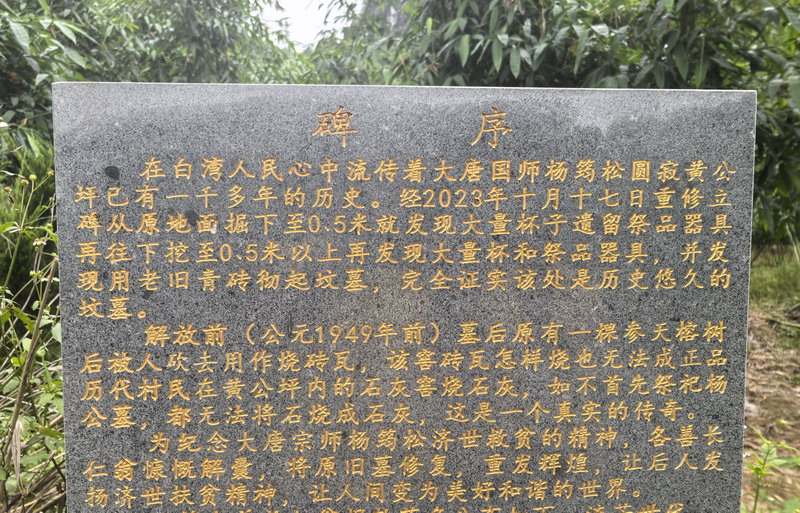 碑 序
在白湾人民心中流传着大唐国师杨筠松圆寂黄公
坪已有一千多年的历史。经2023年十月十七日重修立
碑从原地面掘下至0.5米就发现大量杯子遗留祭品器具
再往下挖至0.5米以上再发现大量杯和祭品器具，并发
现用老旧青砖彻起坟墓，完全证实该处是历史悠久的
坟墓。
解放前（公元1949年前）墓后原有一棵参天榕树
后被人砍去用作烧砖瓦，该窖砖瓦怎样烧也无法成正品
历代村民在黄公坪内的石灰窖烧石灰，如不首先祭祀杨
公墓，都无法将石烧成石灰，这是一个真实的传奇。
为纪念大唐宗师杨筠松济世救贫的精神，各善长
仁翁慷慨解囊，将原旧墓修复，重发辉煌，让后人发
扬济世扶贫精神，让人间变为美好和谐的世界。